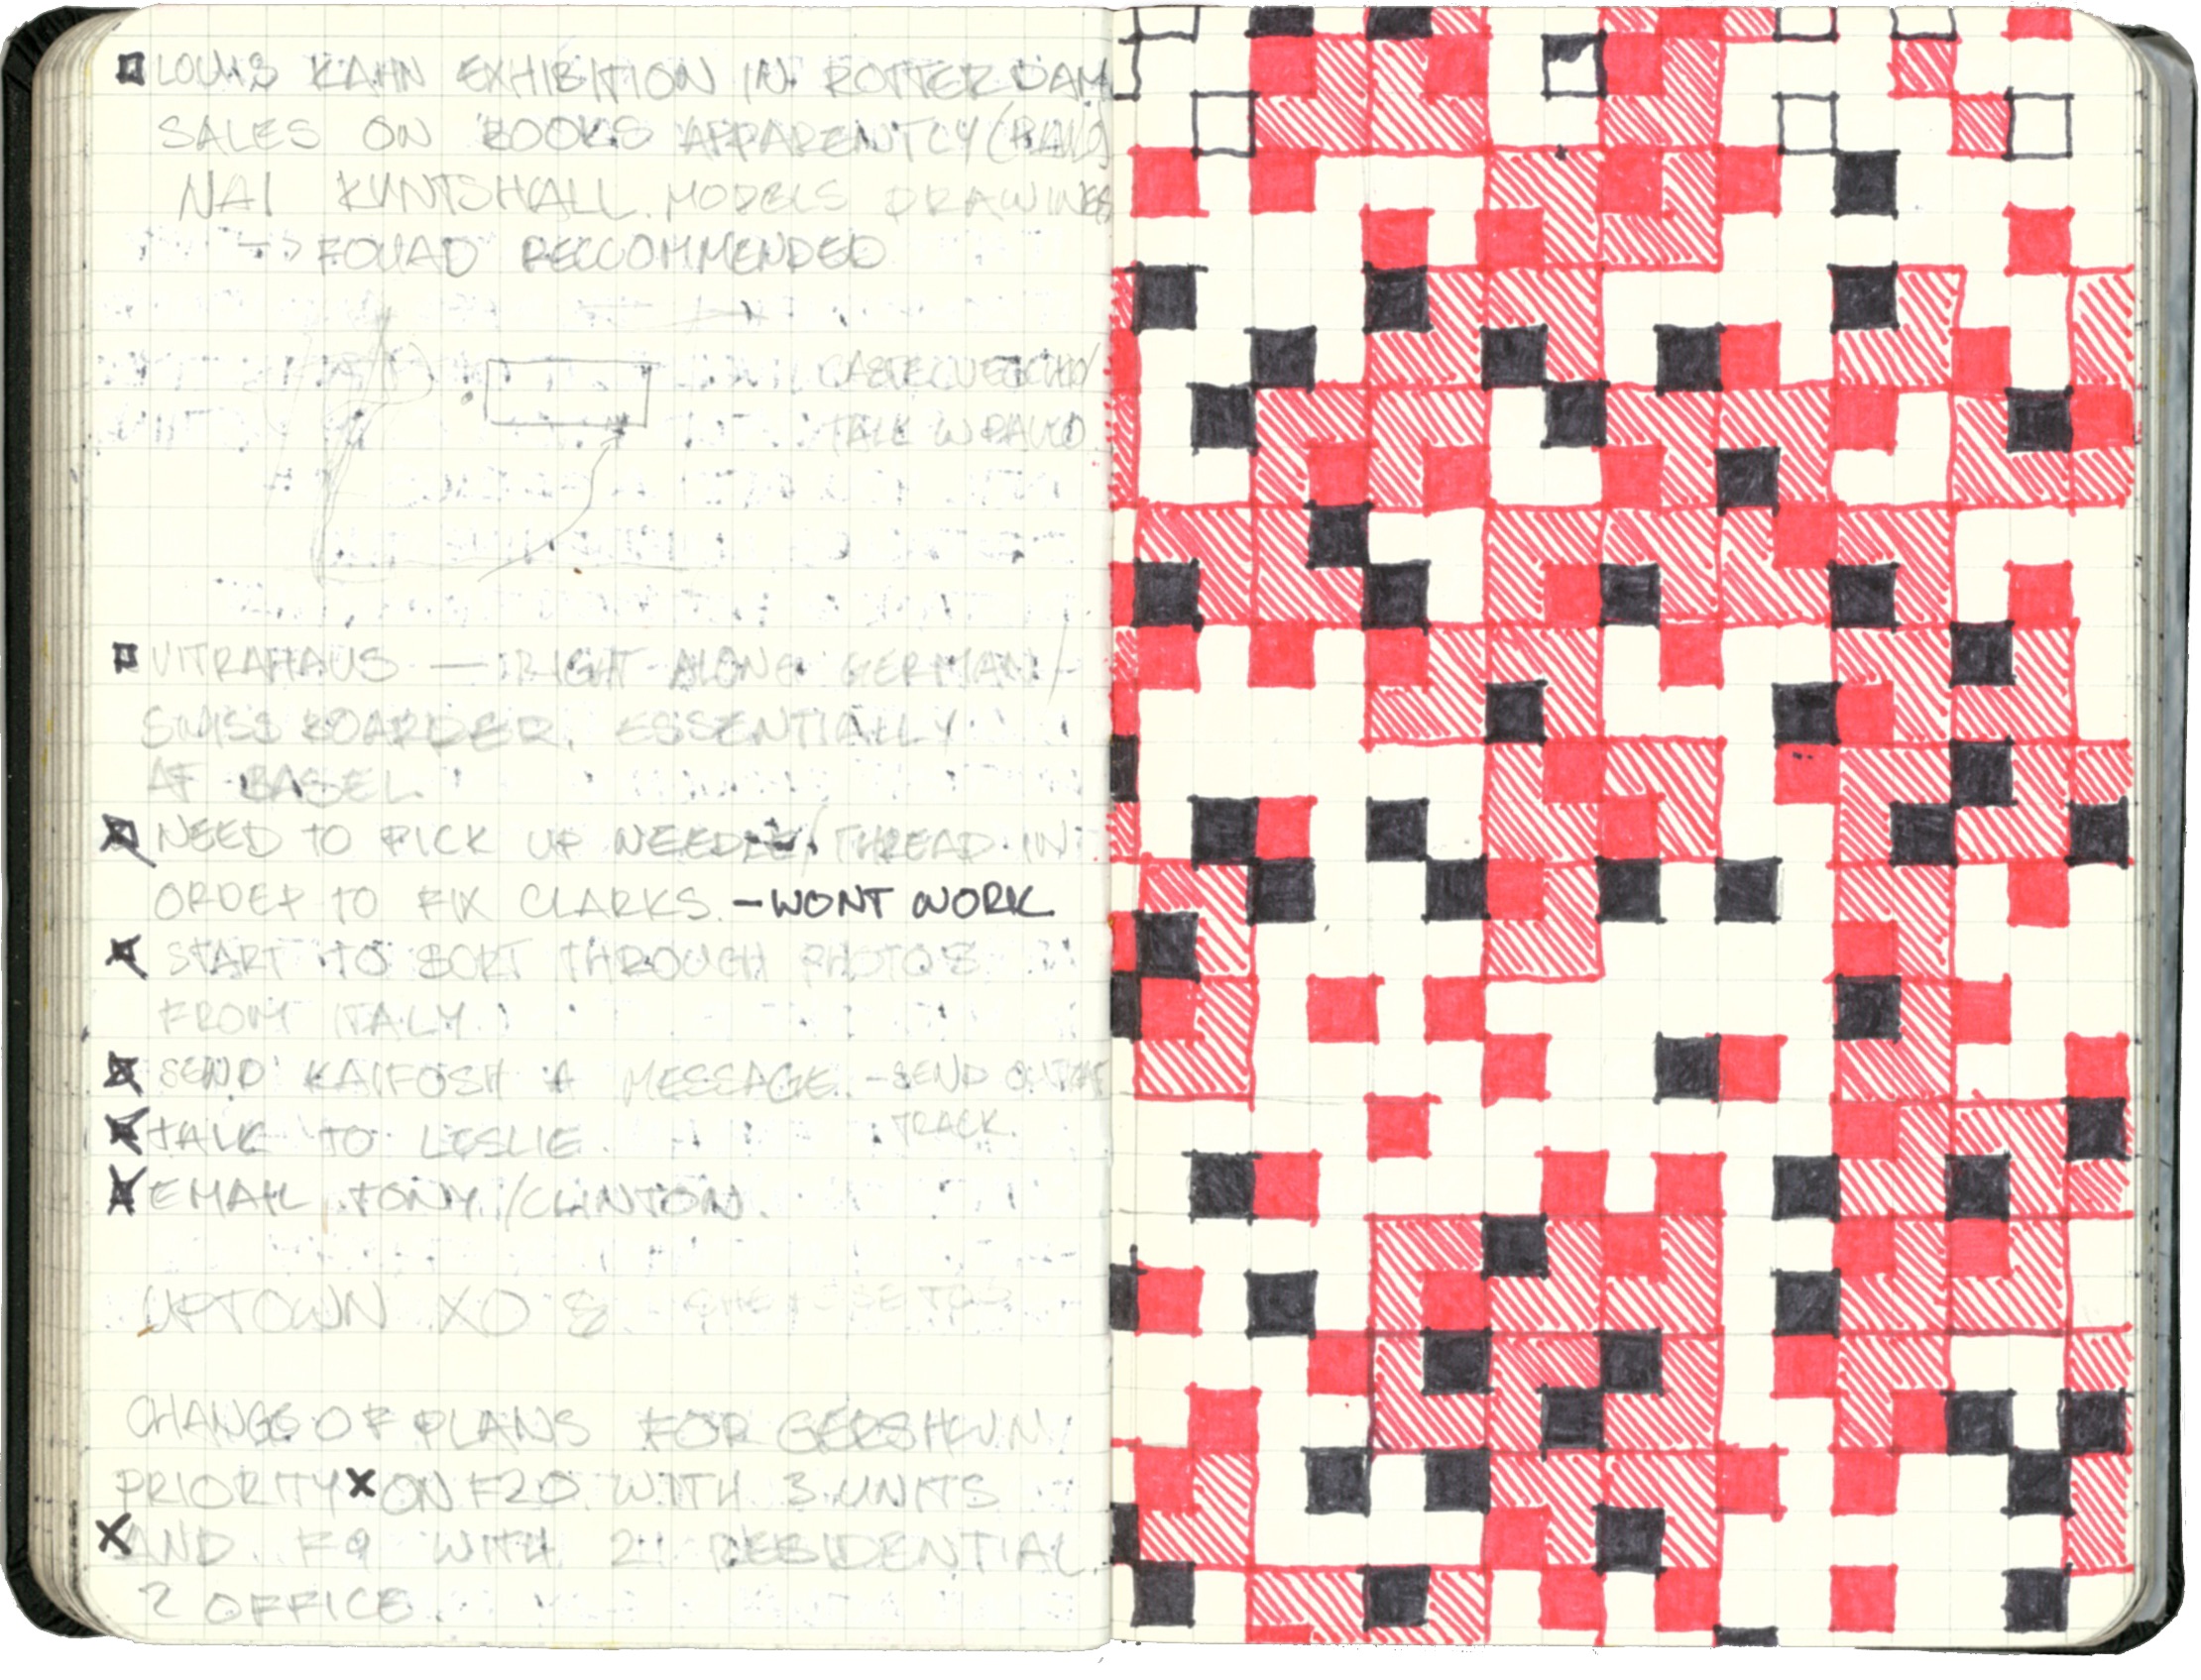 LOUIS KAHN EXHIBITION IN ROTTERDAM
SALES ON BOOKS APPARENTLY
NAI KUNTSHALL. MODELS DRAWINGS
→ FOUAD RECCOMMENDED
TALK W PAULO
VITRAHAUS — RIGHT ALONG GERMAN/
SWISS BOARDER. ESSENTIALLY
BASEL.
NEED TO PICK UP NEEDLE/THREAD IN
ORDER TO FIX CLARKS. -WONT WORK
START TO SORT THROUGH PHOTOS
FROM ITALY
SEND KAIFOSH A MESSAGE. -SEND
TRACK
TALK TO LESLIE
EMAIL TONY/CLINTON.
UPTOWN XO
CHANGE OF PLANS FOR GERSHWIN
PRIORITY X ON F20 WITH 3 UNITS
X AND F9 WITH 21 RESIDENTIAL.
2 OFFICE.